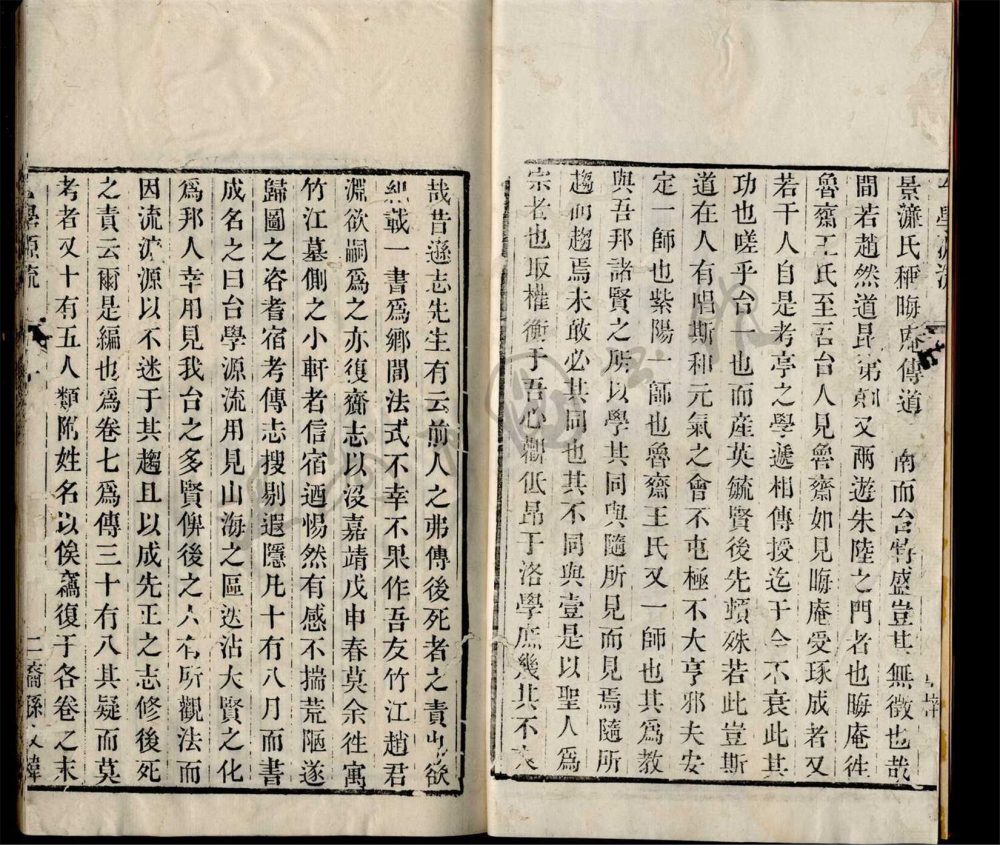 景濂氏稱晦庵傳道 南而台特盛豈其無徵也哉
間若趙然道昆弟類又兩遊朱陸之門者也晦庵徃
魯齋王氏至吾台人見魯齋如見晦庵受琢成者又
若干人自是考亭之學遞相傳授迄于今不衰此其
功也嗟乎台一也而産英毓賢後先頓殊若此豈斯
道在人有唱斯和元氣之會不屯極不大亨邪夫安
定一師也紫陽一師也魯齋王氏又一師也其爲教
與吾邦諸賢之所以學其同與隨所見而見焉隨所
趨而趨焉未敢必其同也其不同與壹是以聖人爲
宗者也取權衡于吾心觀低昂于洛學庶幾其不
哉昔遜志先生有云前人之弗傳後死者之責也欲
纂載一書爲鄉閭法式不幸不果作吾友竹江趙君
淵欲嗣爲之亦復齎志以沒嘉靖戊申春莫余徃寓
竹江墓側之小軒者信宿迺惕然有感不揣荒陋遂
歸圖之咨耆宿考傳志搜剔遐隱凡十有八月而書
成名之曰台學源流用見山海之區迭沾大賢之化
爲邦人幸用見我台之多賢俾後之人有所觀法而
因流泝源以不迷于其趨且以成先正之志修後死
之責云爾是編也爲卷七爲傳三十有八其疑而莫
考者又十有五人類附姓名以俟藳復于各卷之末
學源流
二 裔孫文煒